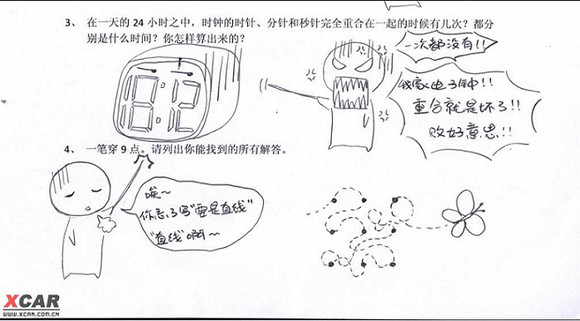 3、 在一天的 24 小时之中，时钟的时针、分针和秒针完全重合在一起的时候有几次？都分
别是什么时间？你怎样算出来的？
一次都没有!!
我家电子钟!!
重合就是坏了!!
败好意思!!
4、 一笔穿 9 点。请列出你能找到的所有解答。
唉～
你忘了写“要是直线”
“直线”啊～
XCAR
WWW.XCAR.COM.CN